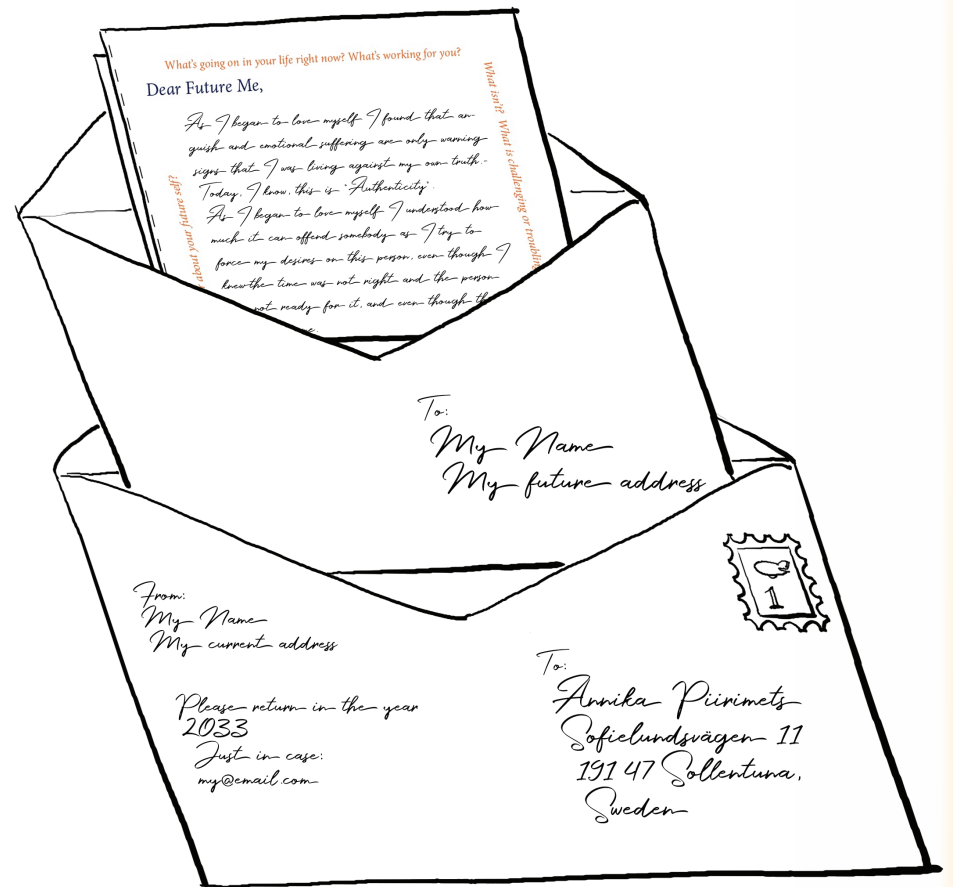 What's going on in your life right now? What's working for you?
What isn't? What is challenging or troubling
about your future self?
Dear Future Me,
As I began to love myself I found that an-
guish and emotional suffering are only warning
signs that I was living against my own truth.-
Today, I know, this is "Authenticity".
As I began to love myself I understood how
much it can offend somebody as I try to
force my desires on this person, even though I
knew the time was not right and the person
not ready for it, and even though
To:
My Name
My future address
From:
My Name
My current address
Please return in the year
2033
Just in case:
my@email.com
1
To:
Annika Piirimets
Sofielundsvägen 11
191 47 Sollentuna,
Sweden